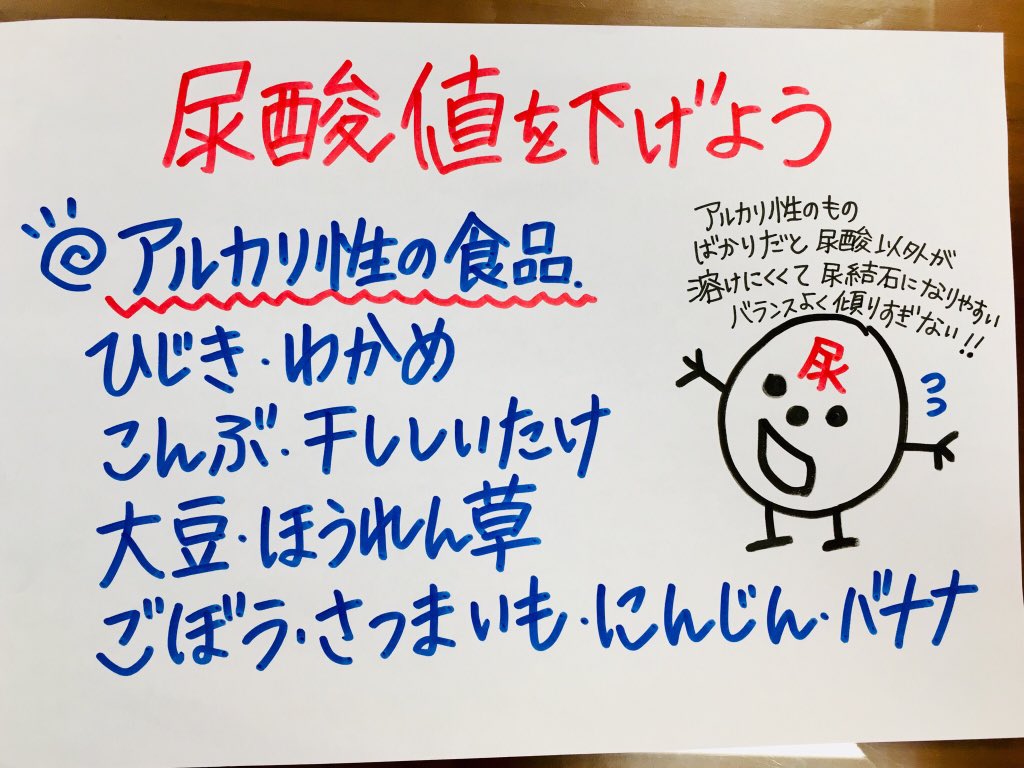 尿酸値を下げよう
アルカリ性の食品.
ひじき・わかめ
こんぶ・干ししいたけ
大豆・ほうれん草
ごぼう・さつまいも・にんじん・バナナ
アルカリ性のもの
ばかりだと尿酸以外が
溶けにくくて尿結石になりやすい
バランスよく傾りすぎない!!
尿